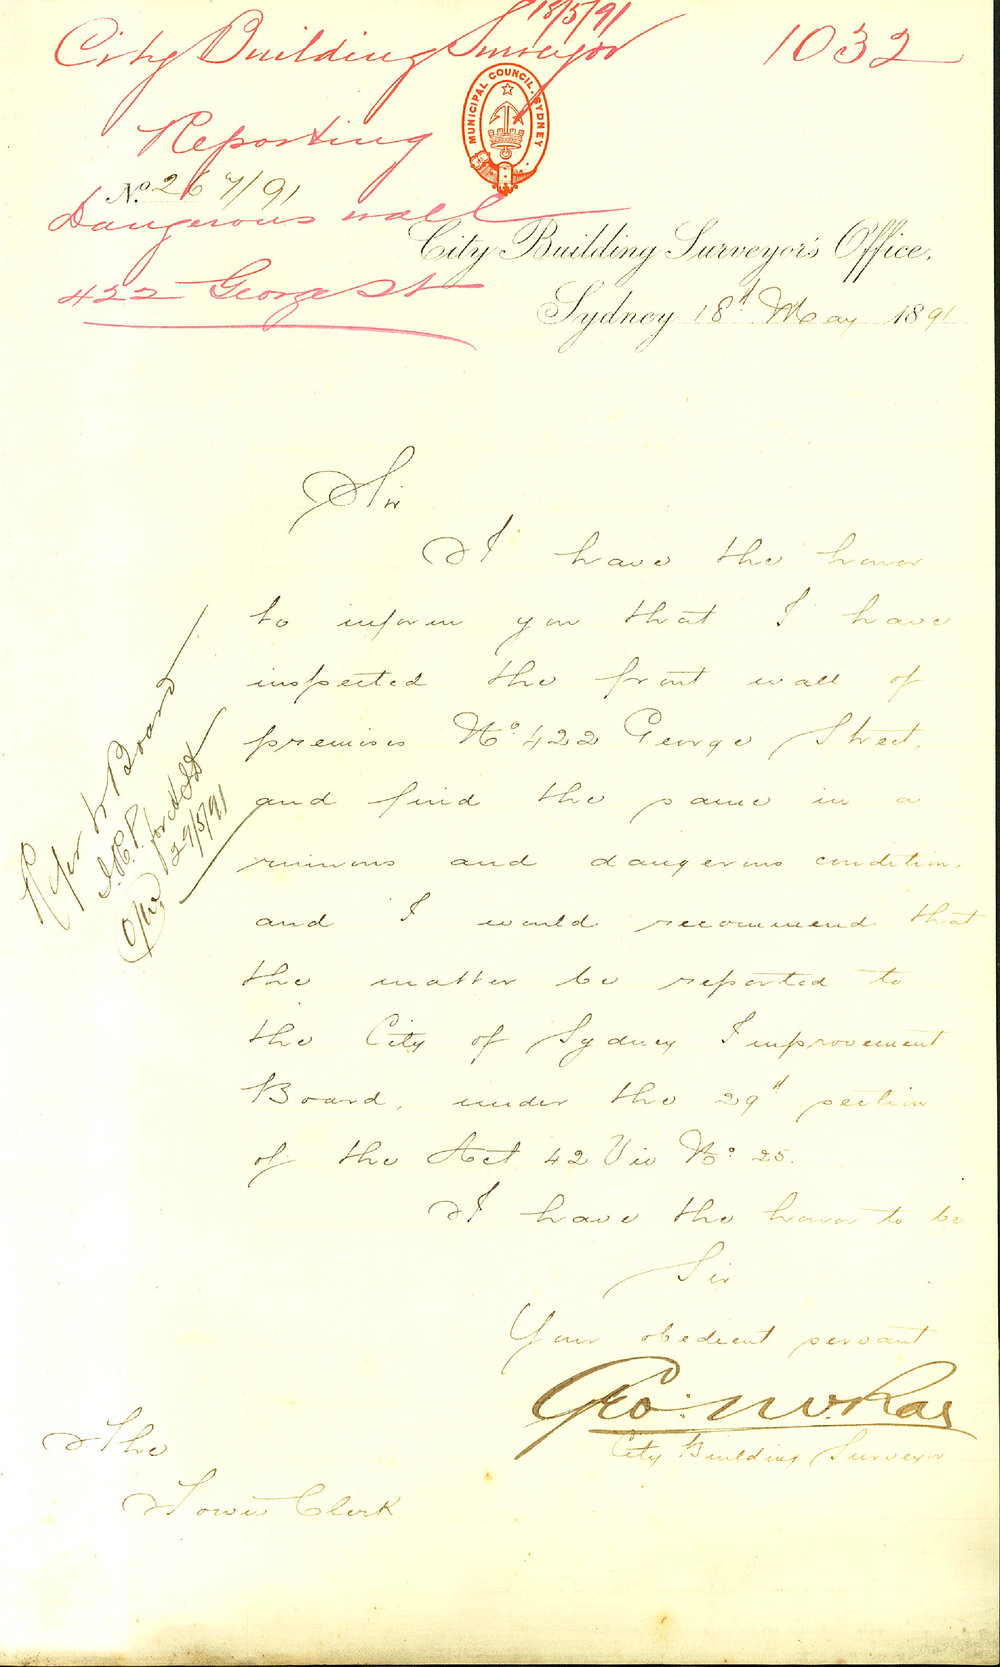 18/5/91
City Building Surveyor 1032
Reporting
MUNICIPAL COUNCIL SYDNEY
No. 267/91
Dangerous wall
City Building Surveyor's Office,
422 George St
Sydney 18th May 1891
Sir
I have the honor
to inform you that I have
inspected the front wall of
premises No. 422 George Street,
and find the same in a
ruinous and dangerous condition,
and I would recommend that
the matter be reported to
the City of Sydney Improvement
Board, under the 29th section
of the Act 42 Vic No. 25.
I have the honor to be
Sir
Your obedient servant
Geo:
City Building Surveyor
The
Town Clerk
Refer to Board
for
29/5/91